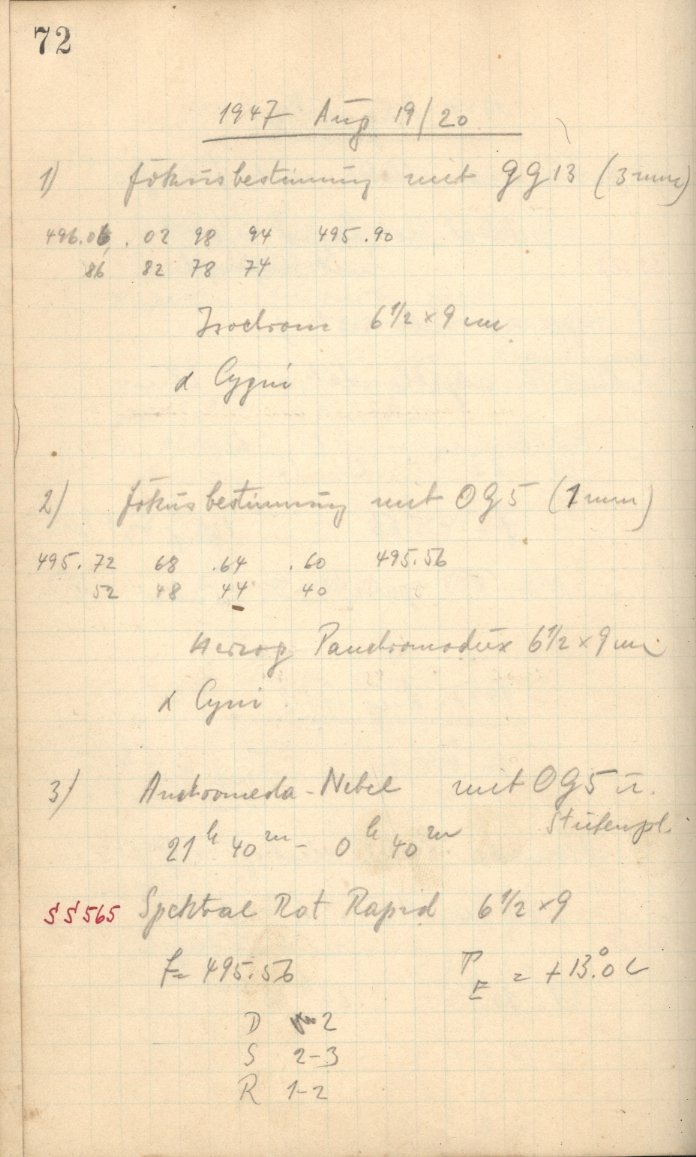 72
1947 Aug 19/20
1) Fokusbestimmung mit GG13 (3mm)
496.06 .02 98 94 495.90
86 82 78 74
Isochrom 6 1/2 × 9 cm
α Cygni
2) Fokusbestimmung mit OG5 (1mm)
495.72 68 .64 .60 495.56
52 48 44 40
Herzog Panchromodux 6 1/2 × 9 cm
α Cyni
3) Andromeda-Nebel mit OG5 u.
Stufenpl.
21h 40m - 0h 40m
SS565 Spektral Rot Rapid 6 1/2 × 9
f = 495.56 T_E = +13.°0 C
D 2
S 2-3
R 1-2